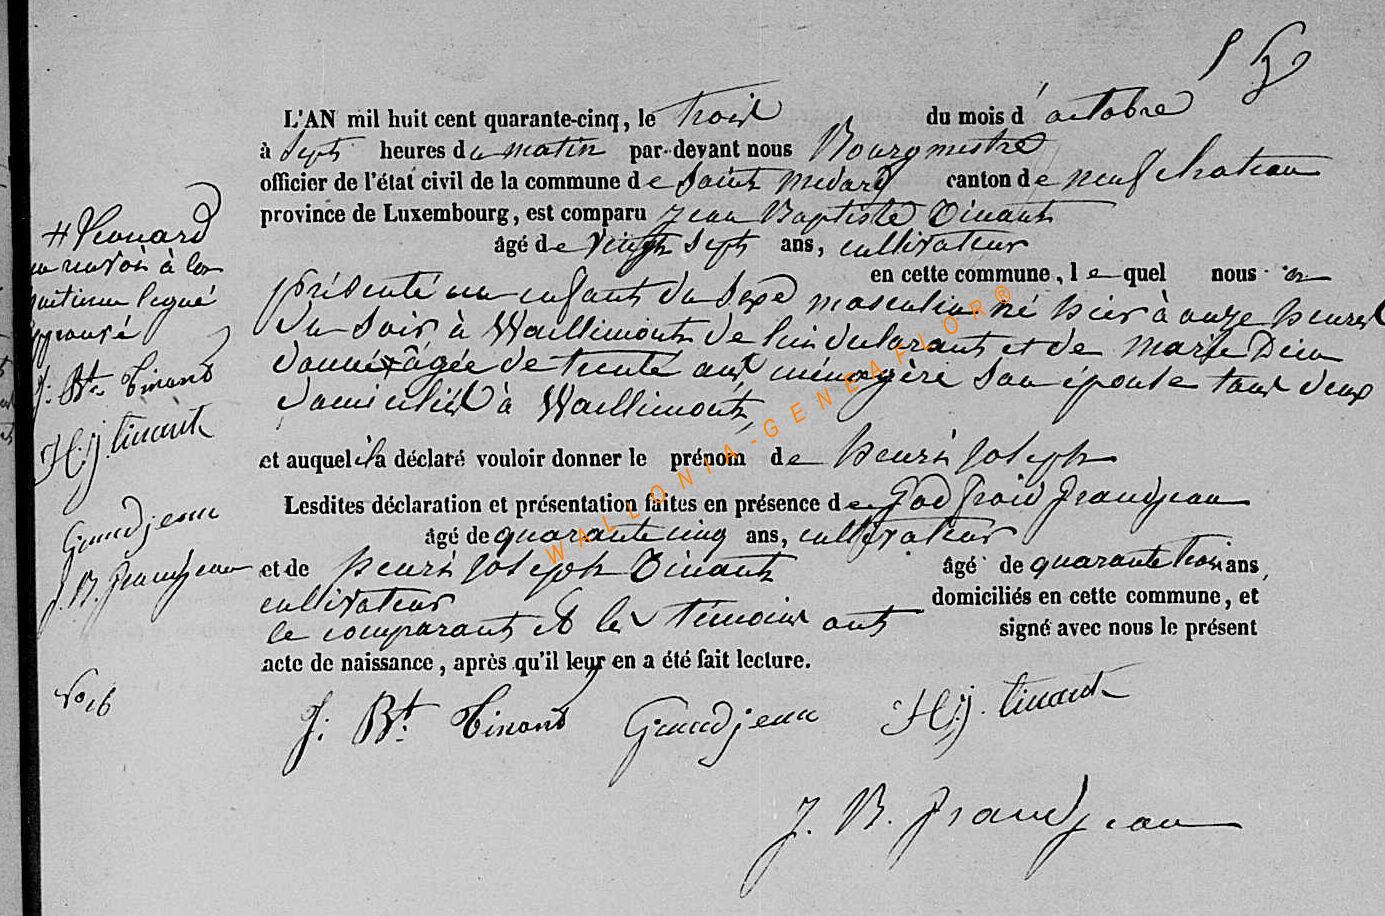 L'AN mil huit cent quarante-cinq, le trois du mois d'octobre
à sept heures du matin par-devant nous Bourgmestre
officier de l'état civil de la commune de Saint Médard canton de neufchateau
province de Luxembourg, est comparu Jean Baptiste Tinant
âgé de vingt sept ans, cultivateur
en cette commune, lequel nous a
présenté un enfant du sexe masculin né hier à onze heures
du soir à Waillimont de lui déclarant et de Marie
âgée de trente ans, ménagère son épouse tous deux
domiciliés à Waillimont,
et auquel il a déclaré vouloir donner le prénom de henri joseph
Lesdites déclaration et présentation faites en présence de Godfroid Grandjean
âgé de quarante cinq ans, cultivateur
et de henri joseph Tinant âgé de quarante trois ans,
cultivateur domiciliés en cette commune, et
le comparant et les témoins ont signé avec nous le présent
acte de naissance, après qu'il leur en a été fait lecture.
J: Bt. Tinant Grandjean H:j. tinant
J. B. Grandjean
# Léonard
un renvoi à la
approuvé
J: Bte Tinant
H:j. tinant
Grandjean
J. B. Grandjean
No 16
WALLONIA-GENEAFLOR®